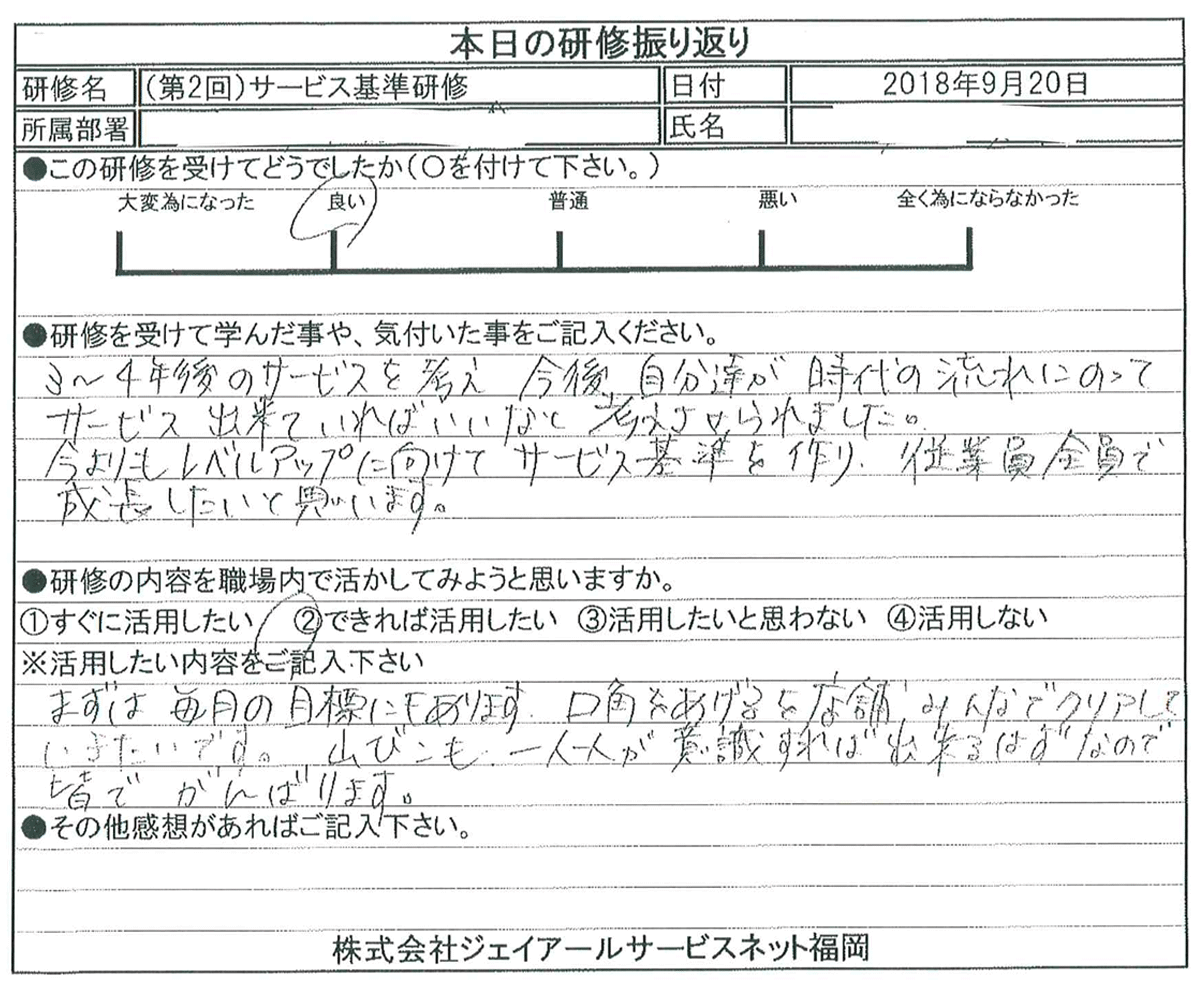 本日の研修振り返り
研修名 (第2回)サービス基準研修 日付 2018年9月20日
所属部署 氏名
●この研修を受けてどうでしたか(○を付けて下さい。)
大変為になった 良い 普通 悪い 全く為にならなかった
●研修を受けて学んだ事や、気付いた事をご記入ください。
3〜4年後のサービスを考え 今後、自分達が 時代の流れにのって
サービス 出来ていればいいなと 考えさせられました。
今よりもレベルアップに向けて サービス基準を作り、従業員全員で
成長したいと思います。
●研修の内容を職場内で活かしてみようと思いますか。
①すぐに活用したい ②できれば活用したい ③活用したいと思わない ④活用しない
※活用したい内容をご記入下さい
まずは 毎月の目標にもあります、口角をあげるを店舗みんなでクリアして
いきたいです。 山びこも、一人一人が 意識すれば 出来るはずなので
皆で がんばります。
●その他感想があればご記入下さい。
株式会社ジェイアールサービスネット福岡